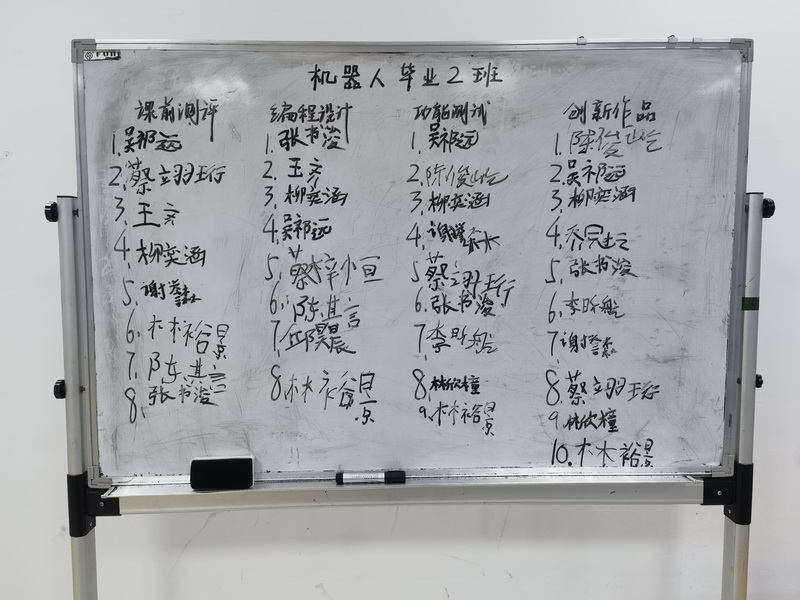 机器人毕业2班
课前测评
1.吴祁远
2.蔡立翊珩
3.王彦
4.柳奕涵
5.谢
6.林裕景
7.陈其言
8.张书浚
编程设计
1.张书浚
2.王彦
3.柳奕涵
4.吴祁远
5.蔡梓恒
6.陈其言
7.邱昊晨
8.林裕景
功能测试
1.吴祁远
2.陈俊屹
3.柳奕涵
4.谢
5.蔡立翊珩
6.张书浚
7.李昕航
8.林欣橦
9.林裕景
创新作品
1.陈俊屹
2.吴祁远
3.柳奕涵
4.乔
5.张书浚
6.李昕航
7.谢
8.蔡立翊珩
9.林欣橦
10.林裕景